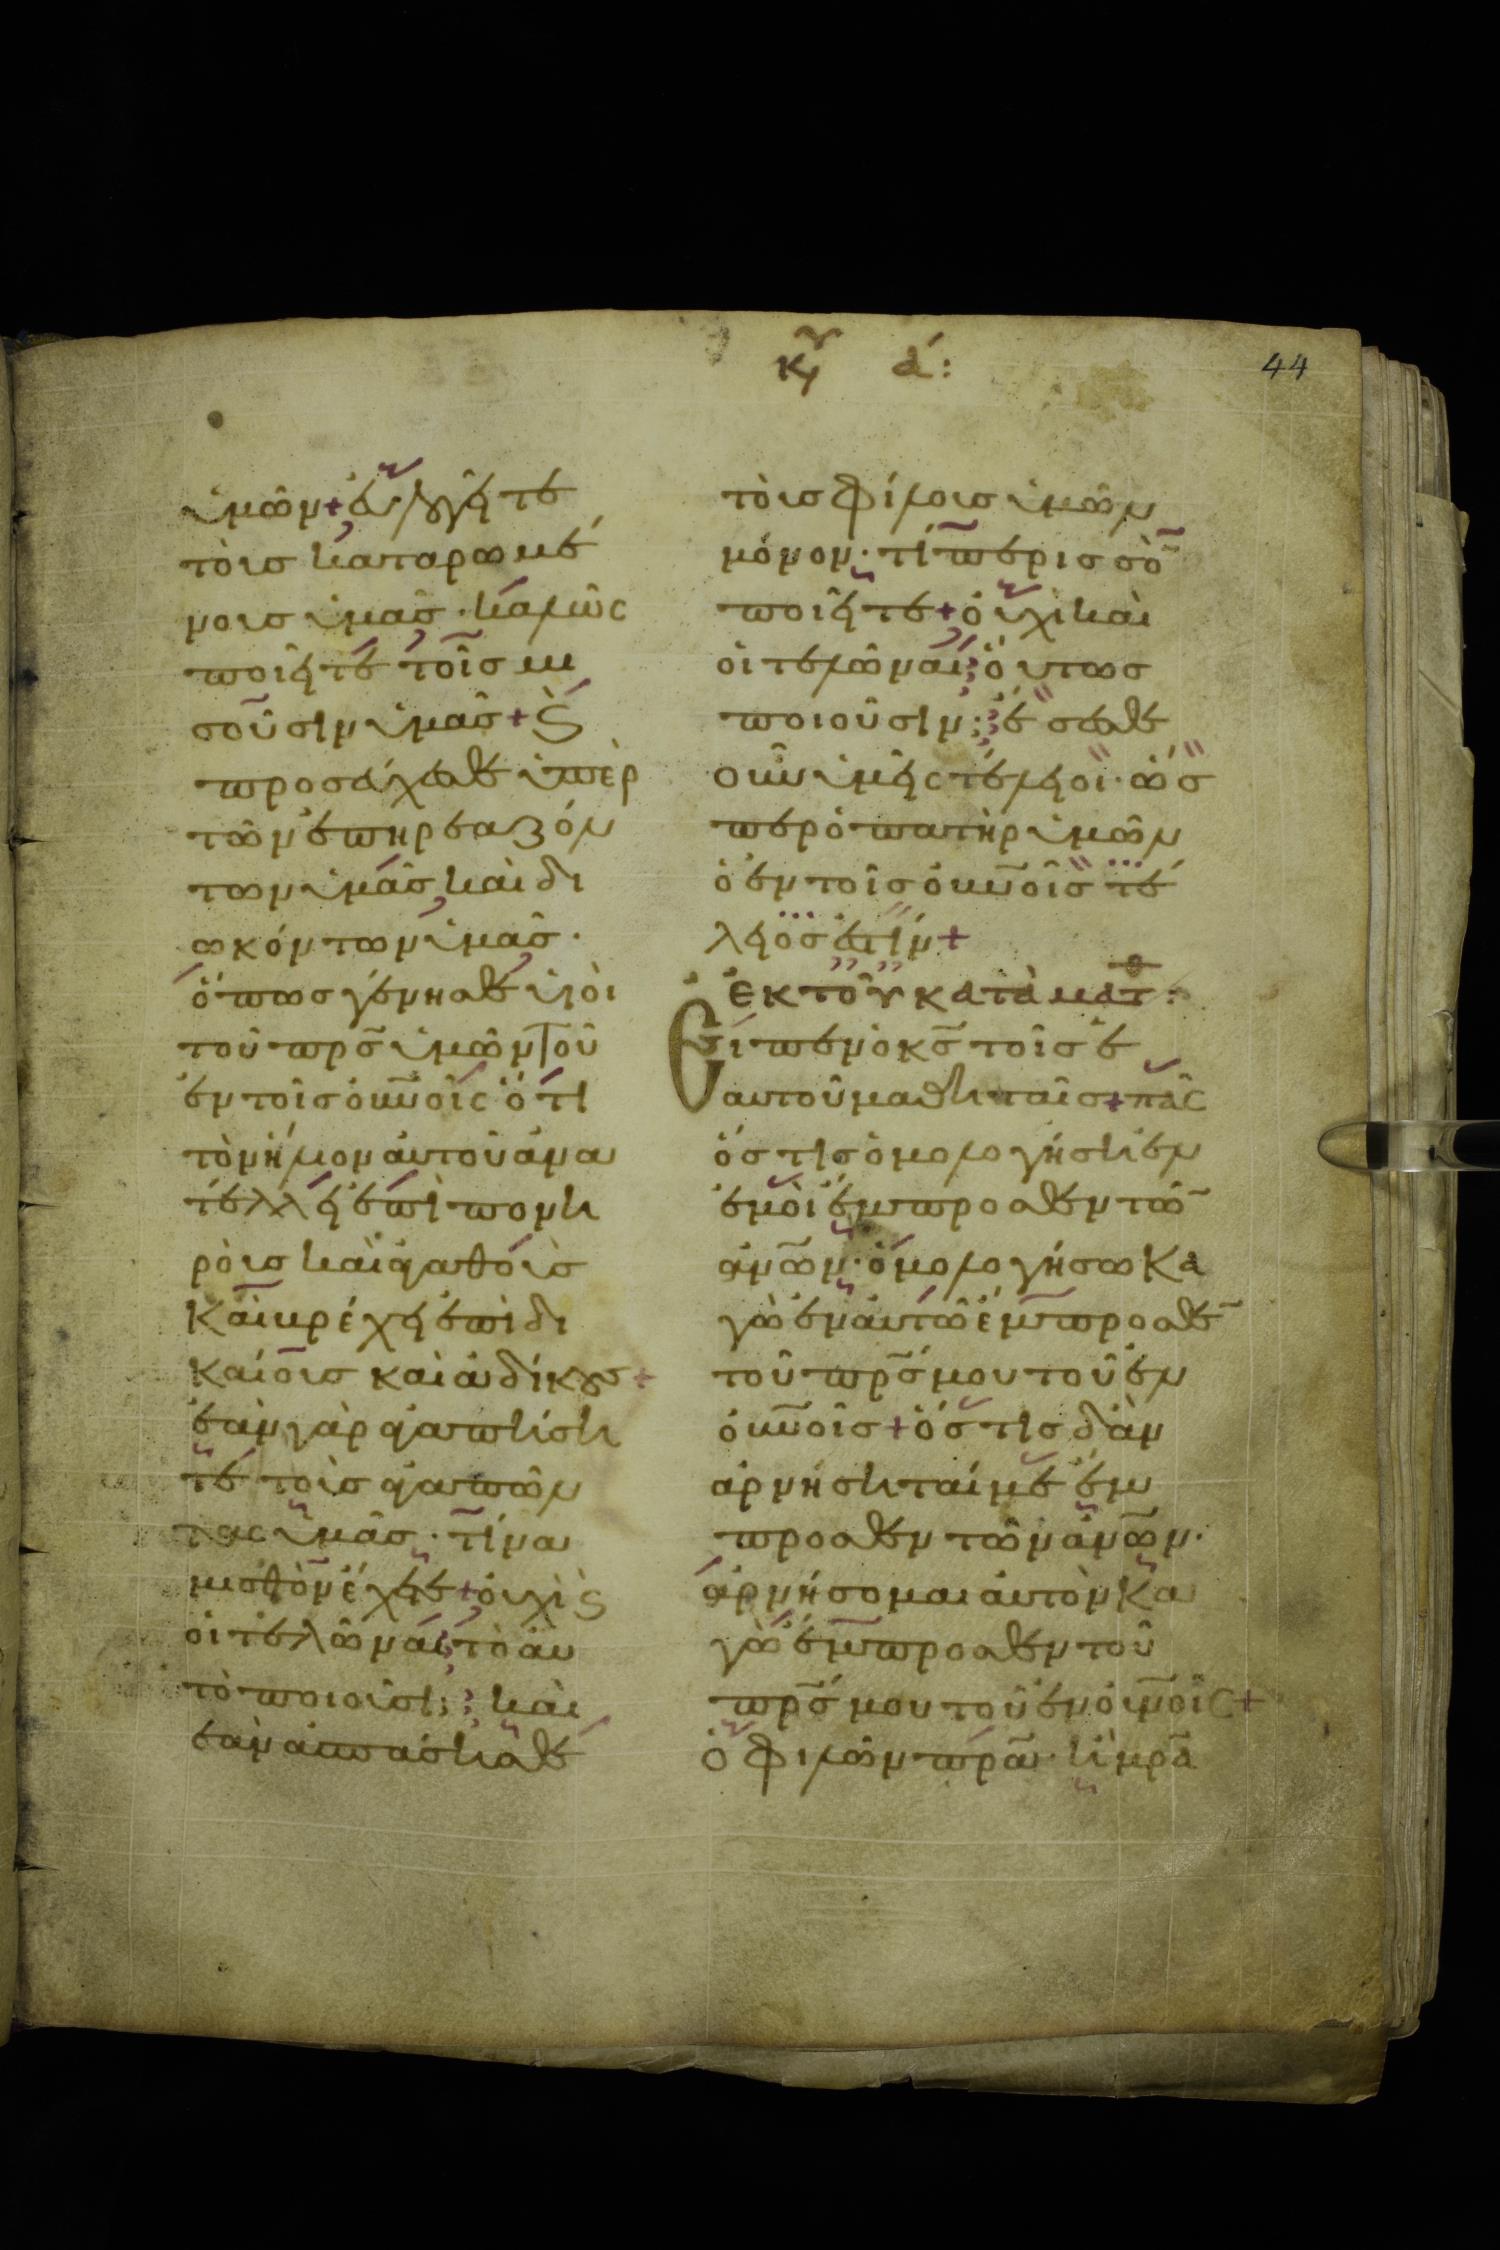 κυ α:
44
ὑμῶν + ἐυλογῆτε
τοῖς καταρωμέ
νοις ὑμᾶς · καλῶς
ποιῆτε τοῖς μι
σοῦσιν ὑμᾶς + ϗ
προσέυχεσθε ὑπὲρ
τῶν ἐπηρεαζόν
των ὑμᾶς καὶ δι
ωκόντων ὑμᾶς ·
ὅπως γένησθε ὑιοὶ
τοῦ πρσ ὑμῶν τοῦ
ἐν τοῖς ὀυνοῖς ὅτι
τὸν ἥλιον ἀυτοῦ ἀνα
τέλλει ἐπὶ πονη
ροὶς καὶ ἀγαθοὶς
καὶ βρέχει ἐπὶ δι
καίοις καὶ ἀδίκους +
ἐὰν γὰρ ἀγαπήση
τε τοὶς ἀγαπῶν
τας ὑμᾶς · τίνα
μισθὸν ἔχετε + ὀυχὶ ϗ
οἱ τελῶναι τὸ ἀυ
τὸ ποιοῦσι ; καὶ
ἐὰν ἀσπάσησθε
τοὶς φίλοις ὑμῶν
μόνον · τί περισσὸ
ποιῆτε + ὀυχὶ καὶ
οἱ τελῶναι ὅυτως
ποιοῦσιν ; ἔσεσθε
οῦν ὑμεῖς τέλειοι · ὥσ
περ ὁ πατὴρ ὑμῶν
ὁ ἐν τοῖς ὀυνοῖς τέ
λειος ἐστίν +
ἐκ τοῦ κατὰ ματθ :
Εἶπεν ὁ κσ τοῖς ἑ
αυτοῦ μαθηταῖς + πᾶς
ὅστις ὁμολογήση ἐν
ἐμοὶ ἔμπροσθεν τῶ
ἀνων · ὁμολογήσω κα
γὼ ἐν ἀυτῶ ἔμπροσθε
τοῦ πρσ μου τοῦ ἐν
ὀυνοῖς + ὅστις δ᾽ ἂν
ἀρνήσηταί με ἔμ
προσθεν τῶν ἀνων ·
ἀρνήσομαι ἀυτὸν κα
γὼ ἔμπροσθεν τοῦ
πρσ μου τοῦ ἐν ὀυνοῖς +
ὁ φιλῶν πρα · ἢ μρα